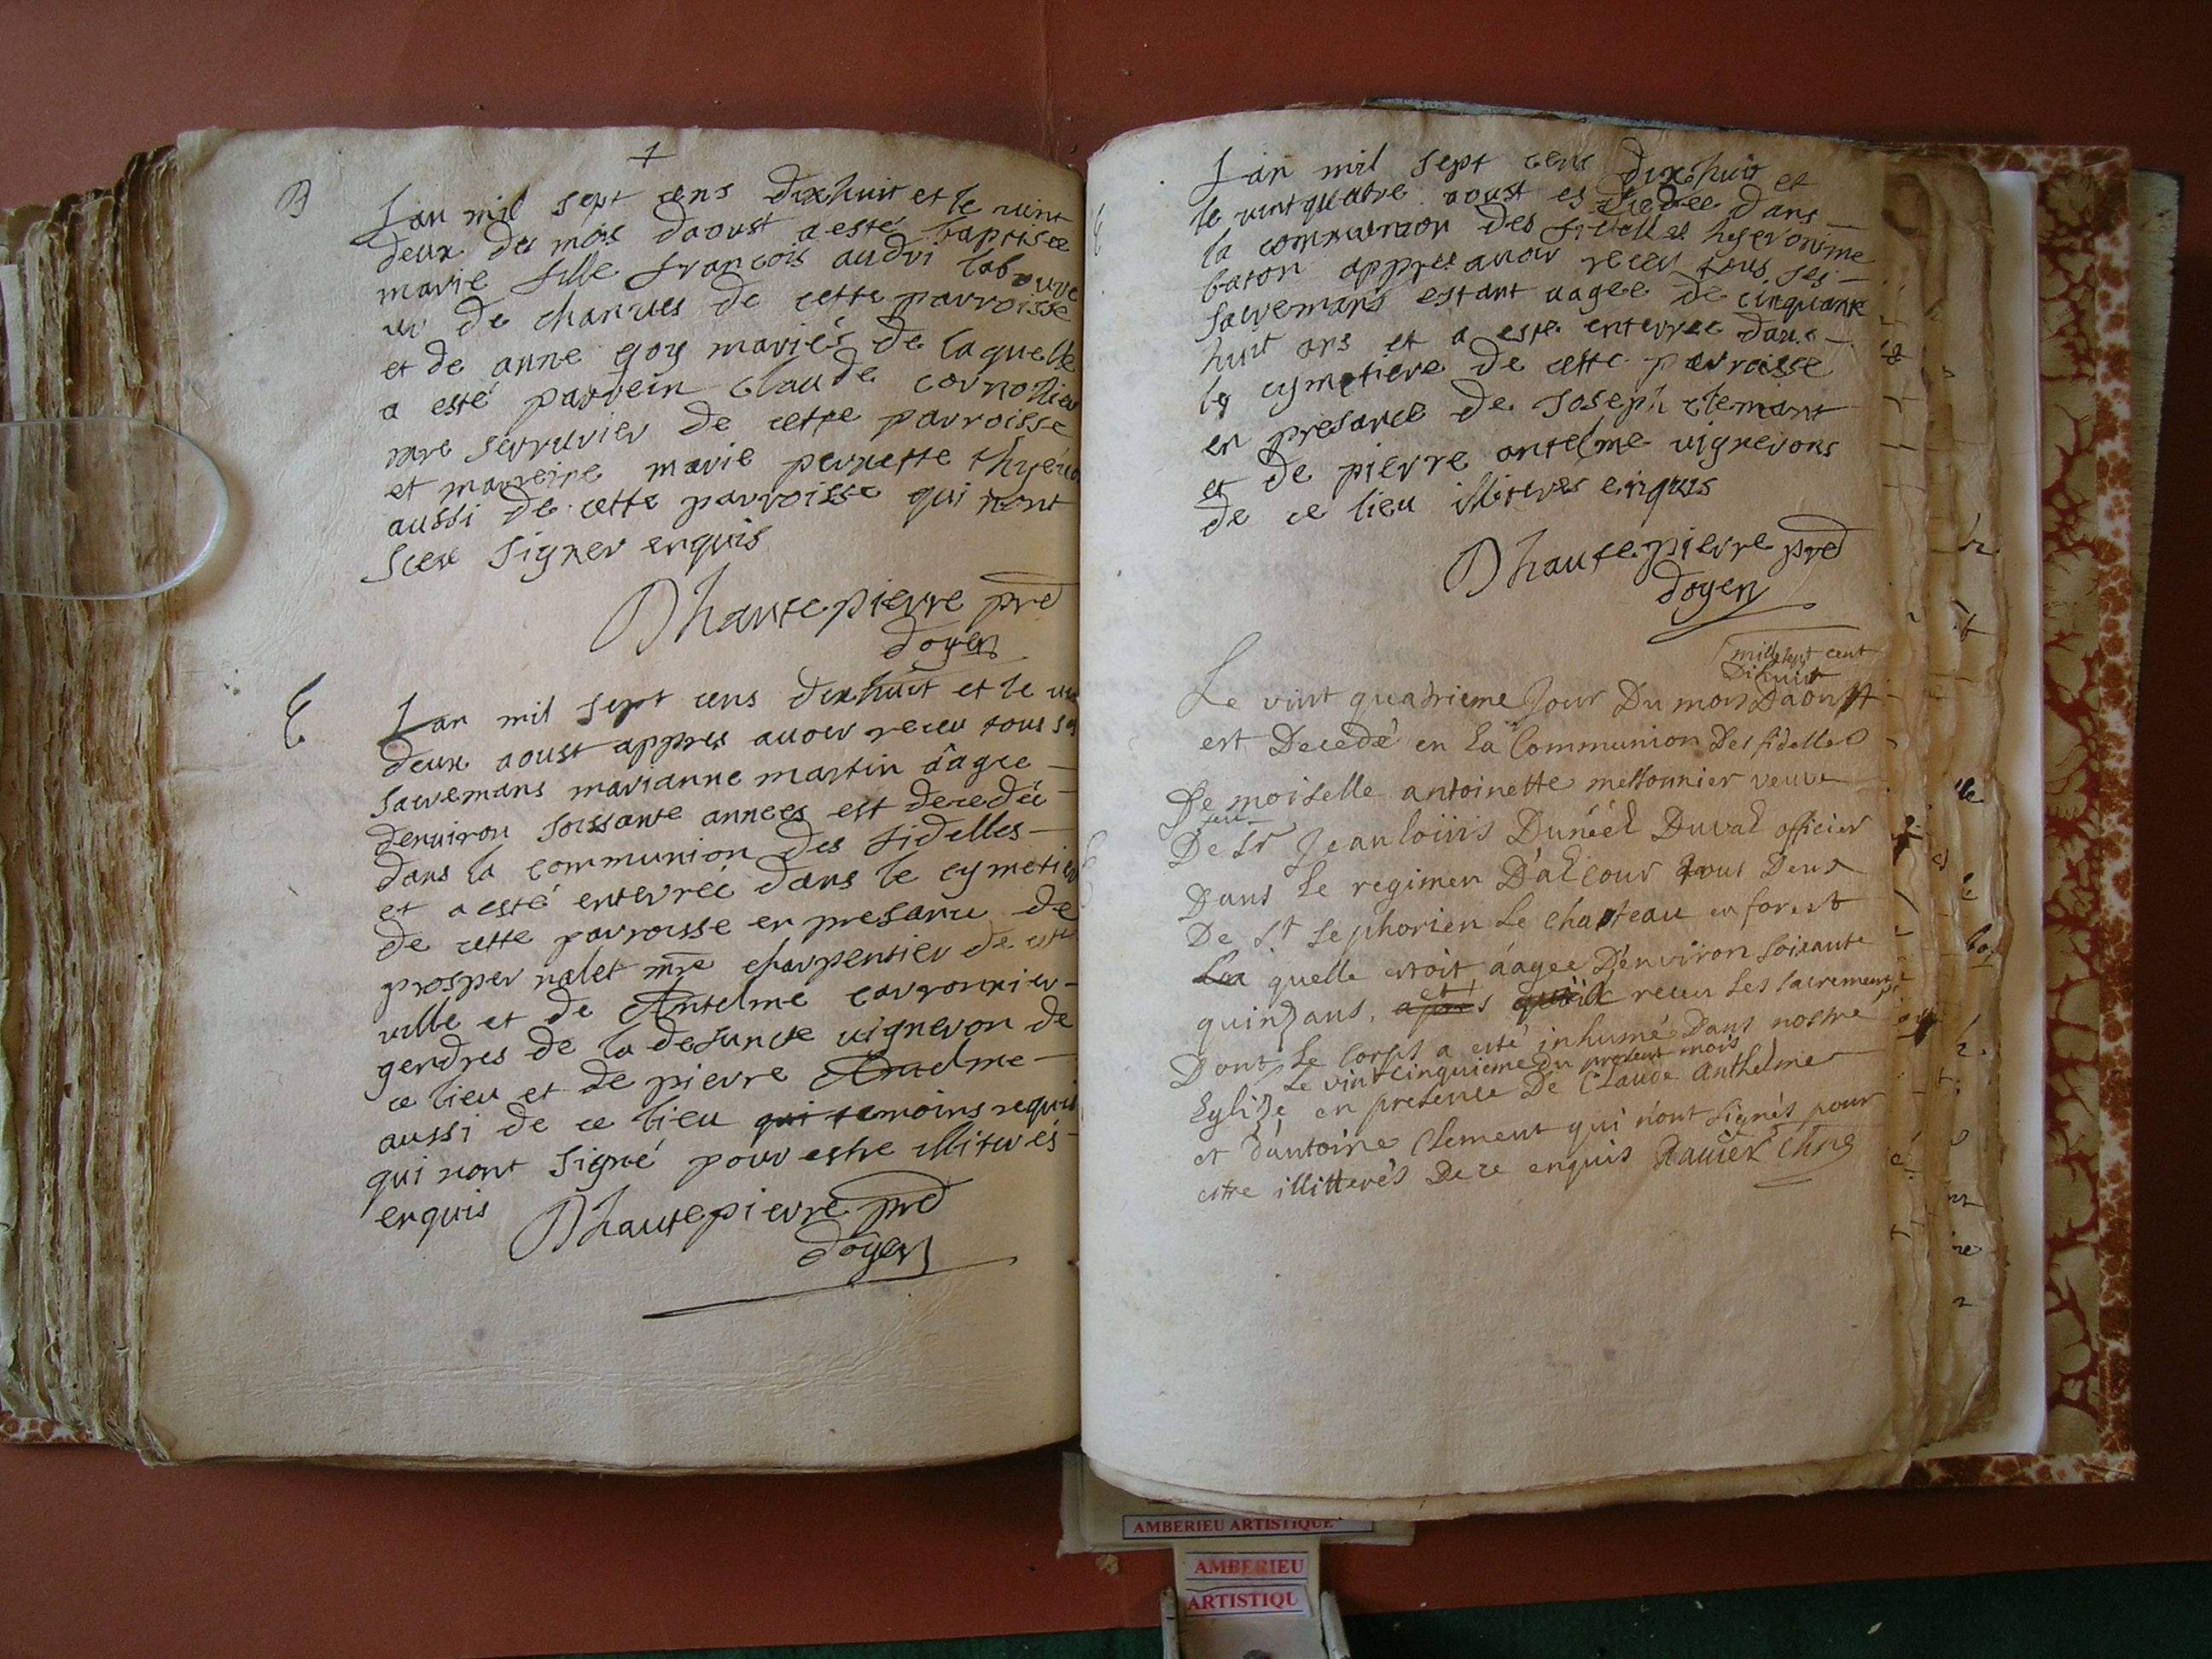 +
B
Lan mil sept cens dixhuit et le vint
deux du mois daoust a esté baptisée
marie fille françois audri laboure
ur de chanves de cette parroisse
et de anne goy mariés de laquelle
a esté parrein claude cornollier
mre serrurier de cette parroisse
et marreine marie pernette
aussi de cette parroisse qui nont
sceu signer enquis
Dhautepierre pre
doyen
E
Lan mil sept cens dixhuit et le vint
deux aoust appres auoir receu tous ses
sacremans marianne martin âagee
denuiron soissante annees est decedée
dans la communion des fidelles
et a esté enterrée dans le cymetiere
de cette parroisse en presance de
prosper nalet mre charpentier de cette
ville et de Antelme carronnier
gendres de la defuncte uigneron de
ce lieu et de pierre Antelme
aussi de ce lieu qui temoins requis
qui nont signé pour estre illiturés
enquis Dhautepierre pre
doyen
E
Lan mil sept cens dixhuit et
le vintquatre aoust es decedée dans
la communion des fidelles hyeronime
baton appres auoir receu tous ses
sacremans estant aagee de cinquante
huit ans et a este enterree dans
le cymetiere de cette parroisse
en presance de Joseph clemant
et de pierre antelme uignerons
de ce lieu illiteres enquis
Dhautepierre pre
doyen
mille sept cent
Dihuit
Le vint quatrieme Jour Du mois Daoust
est Decedé en La Communion Des fidelles
Demoiselle antoinette messonnier veuve
feu
De Sr Jean louis Duneel Duval officier
Dans Le regimen D'alcour tous Deux
De St Sephorien Le chasteau en forest
La quelle estoit âagee D'environ soixante
et
quinz ans, apres receu Les sacrements
Dont Le Corps a esté inhumé Dans nostre
Le vint cinquieme Du present mois
Eglize en presence De Claude anthelme
et d'antoine Clement qui n'ont signés pour
estre illitterés De ce enquis
AMBERIEU ARTISTIQUE
AMBERIEU
ARTISTIQU